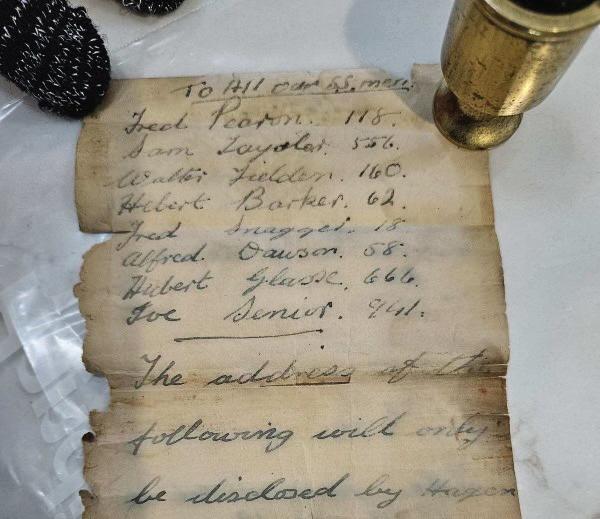 To All our SS, men.
Fred Pearon. 118.
Sam Taylor. 556.
Walter Fielden. 160.
Hebert Barker. 62.
Fred Snagger. 18
Alfred Dawson. 58.
Hubert Glasse. 666.
Joe Senior. 941.
The address of the
following will only
be disclosed by Hagen